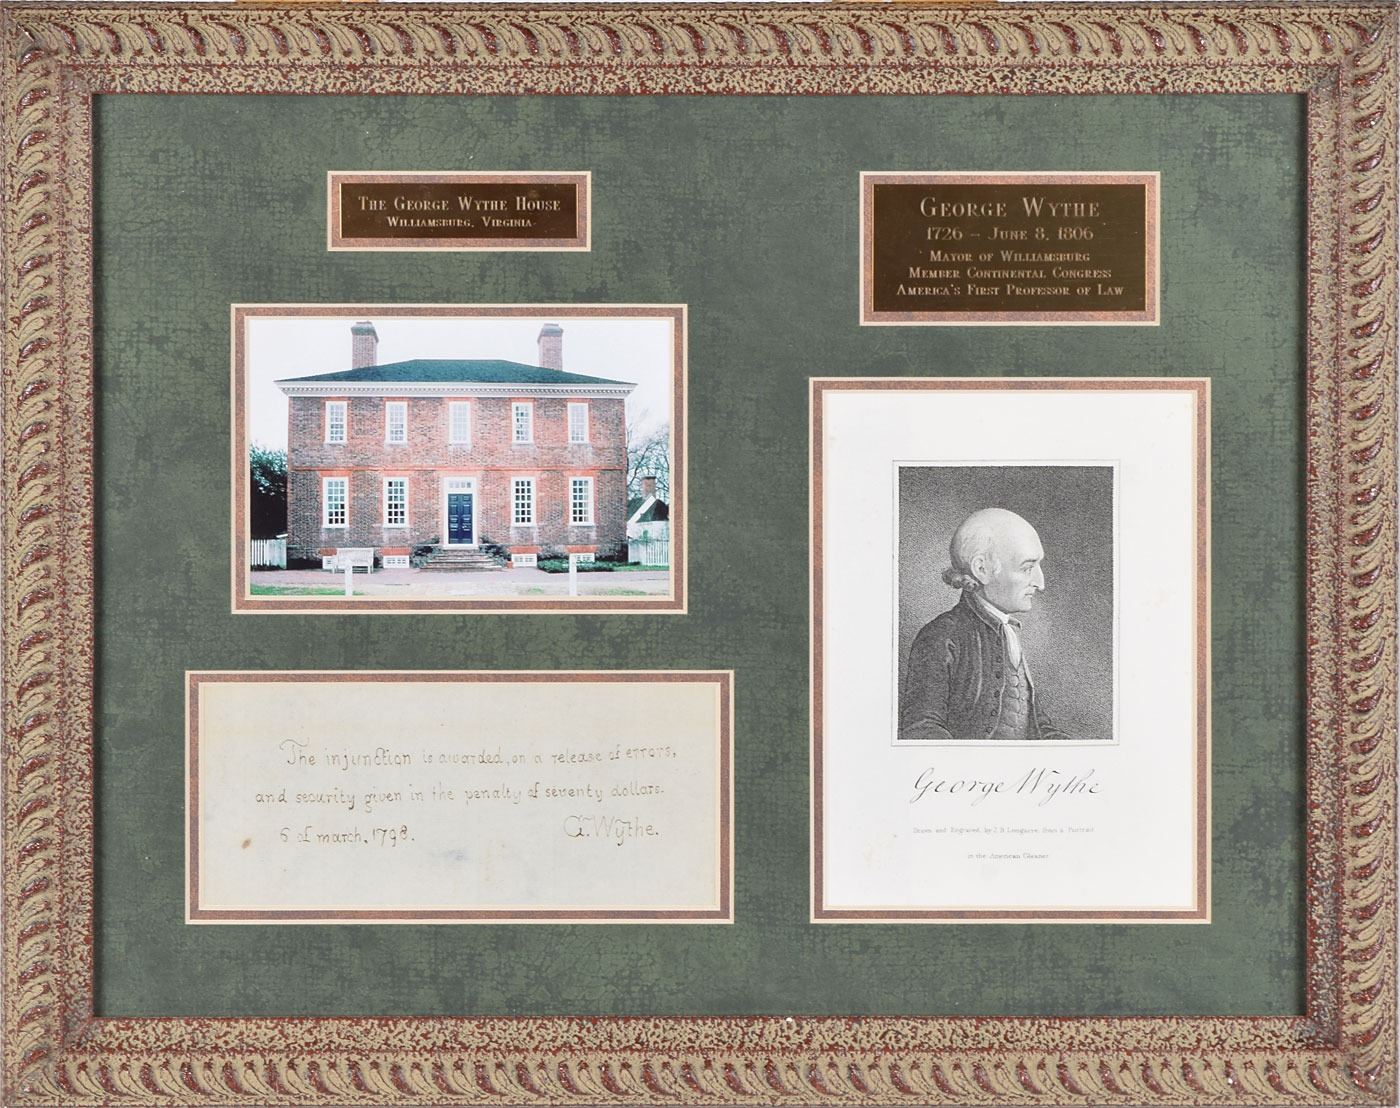 THE GEORGE WYTHE HOUSE
WILLIAMSBURG, VIRGINIA
The injunction is awarded, on a release of errors,
and security given in the penalty of seventy dollars.
6 of march, 1798. G. Wythe.
GEORGE WYTHE
1726 – JUNE 8, 1806
MAYOR OF WILLIAMSBURG
MEMBER CONTINENTAL CONGRESS
AMERICA'S FIRST PROFESSOR OF LAW
George Wythe
Drawn and Engraved, by J. B. Longacre, from a Portrait
in the American Gleaner